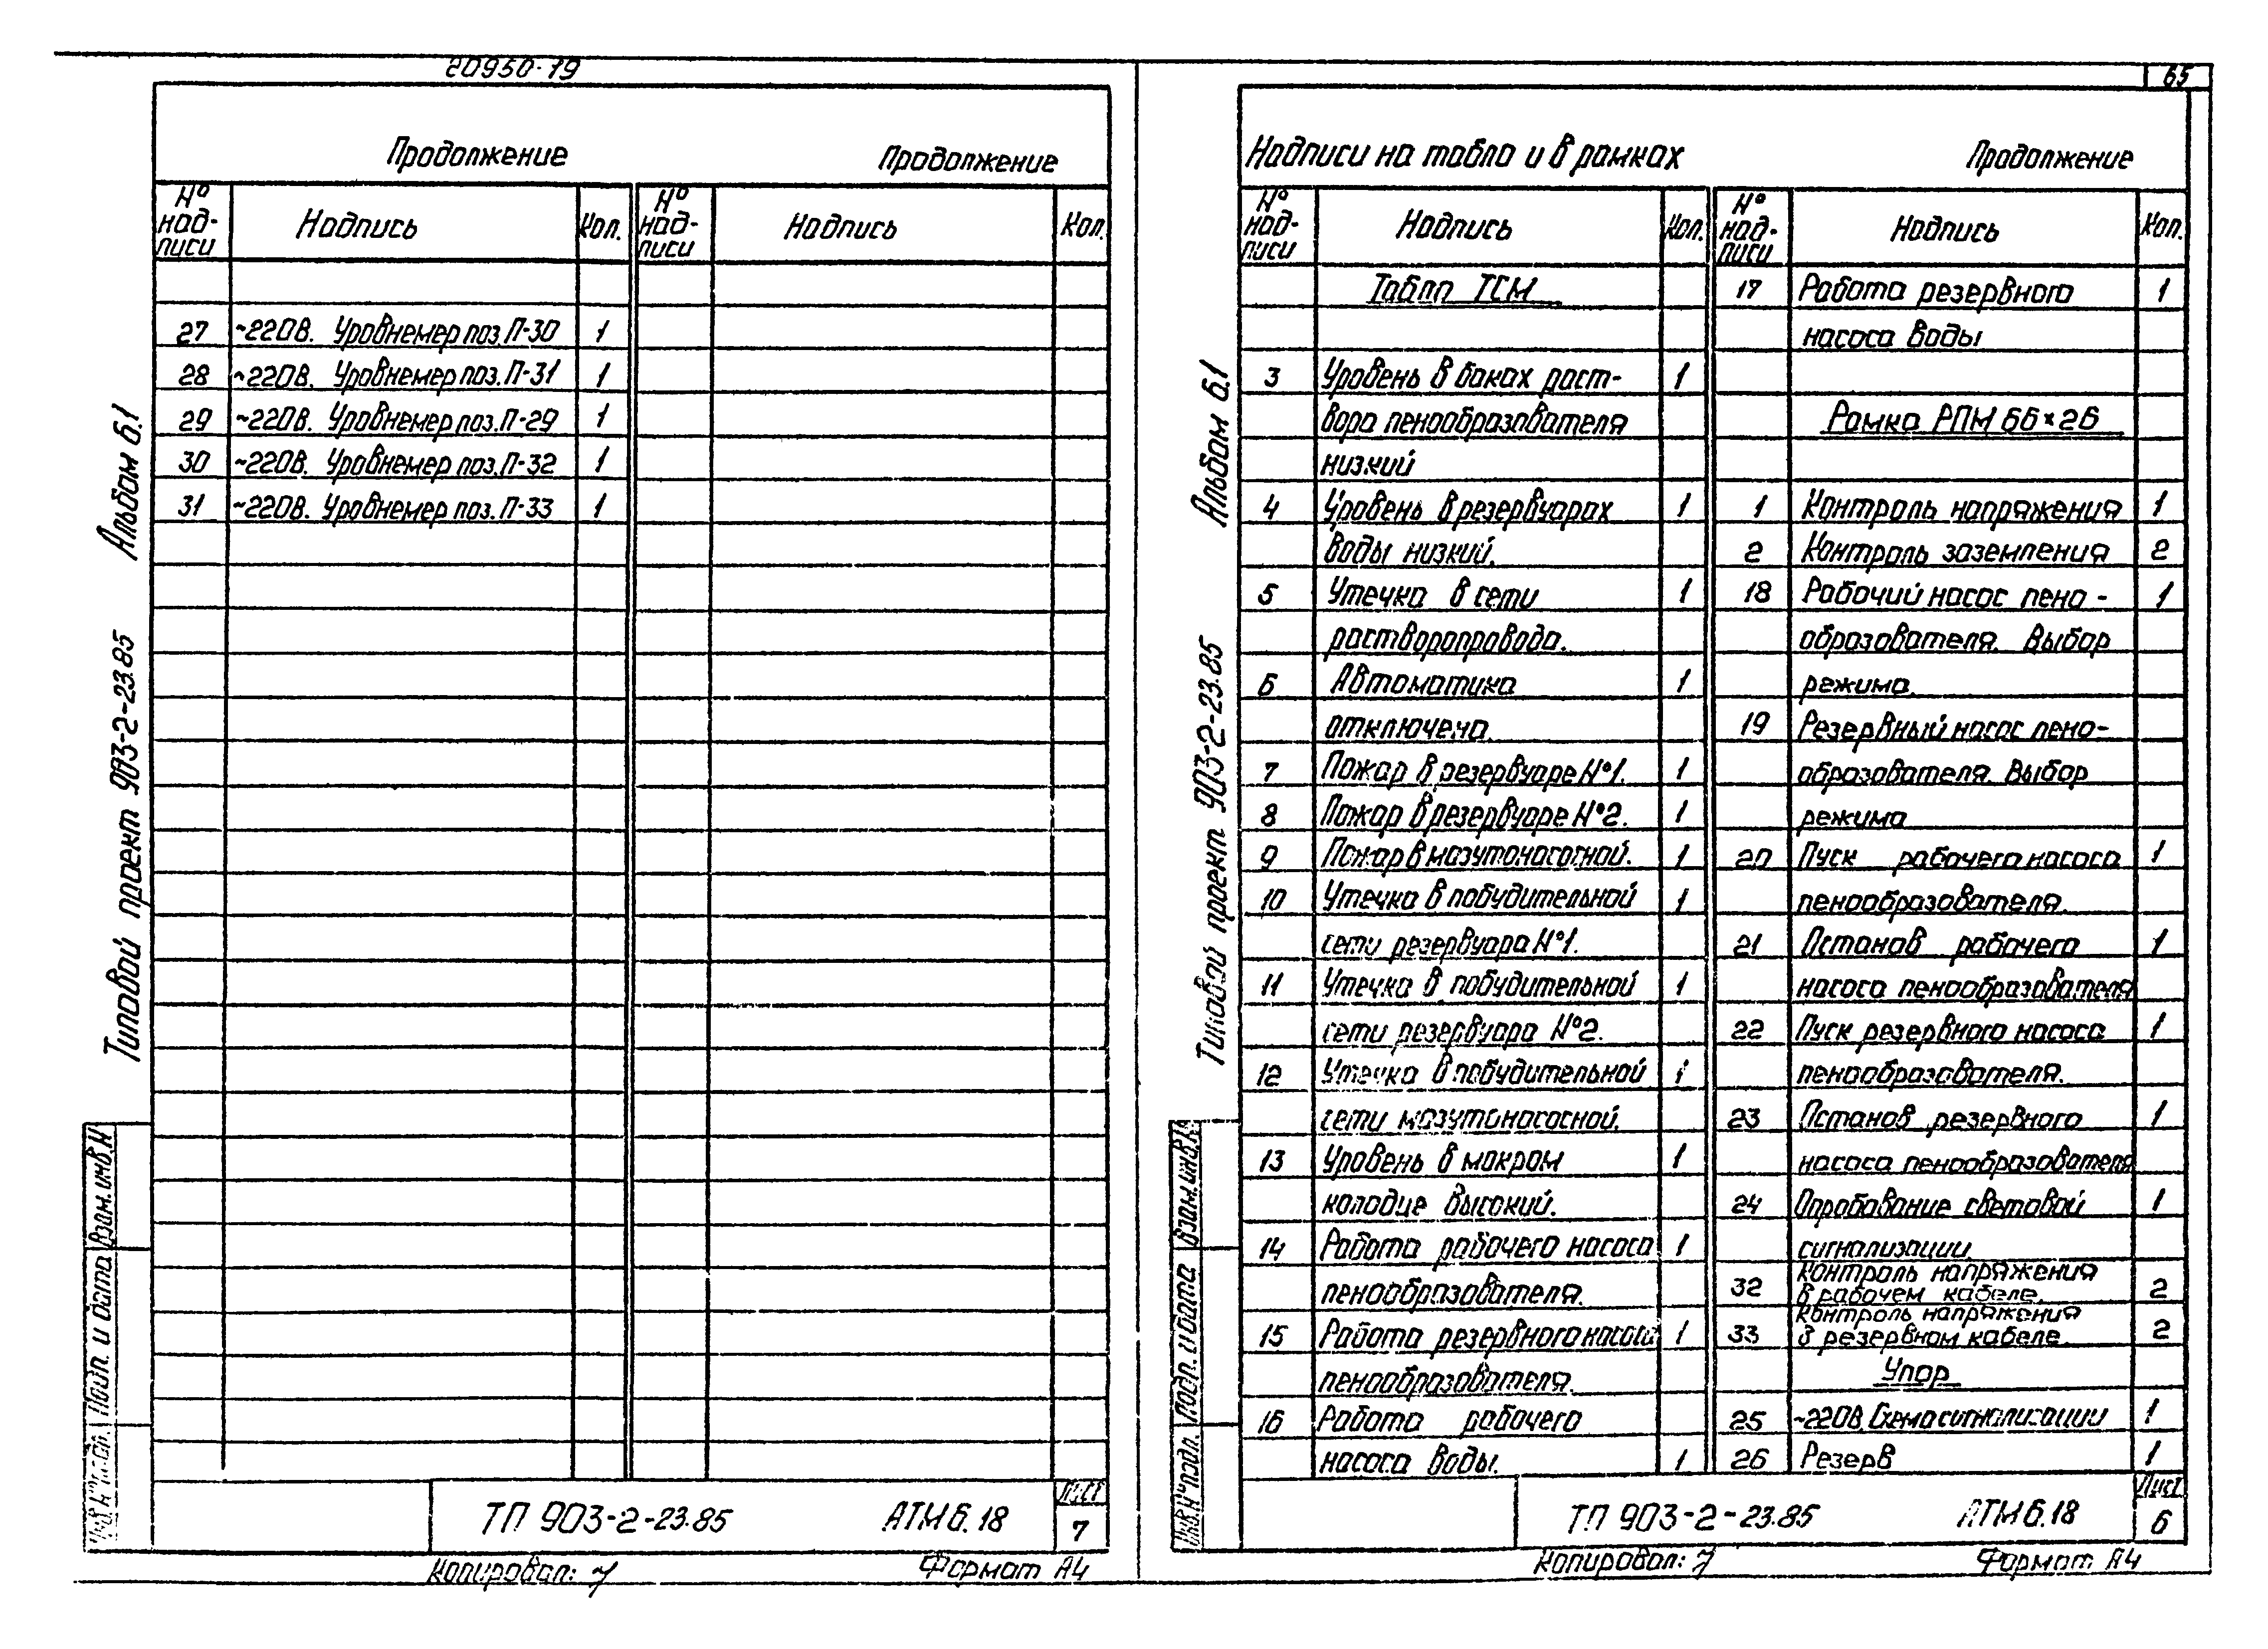 20950-19
65
Продолжение
Продолжение
№ надписи Надпись Кол. № надписи Надпись Кол.
27 ~220В. Уровнемер поз. П-30 1
28 ~220В. Уровнемер поз. П-31 1
29 ~220В. Уровнемер поз. П-29 1
30 ~220В. Уровнемер поз. П-32 1
31 ~220В. Уровнемер поз. П-33 1
Альбом 6.1
Типовой проект 903-2-23.85
Взам. инв. N
Подп. и дата
ТП 903-2-23.85 АТМ6.18
Лист
7
Копировал:
Формат А4
Надписи на табло и в рамках
Продолжение
№ надписи Надпись Кол. № надписи Надпись Кол.
Табло ТСМ
3 Уровень в баках раст- 1
вора пенообразователя
низкий
4 Уровень в резервуарах 1
воды низкий.
5 Утечка в сети 1
растворопровода.
6 Автоматика 1
отключена.
7 Пожар в резервуаре №1. 1
8 Пожар в резервуаре №2. 1
9 Пожар в мазутонасосной. 1
10 Утечка в побудительной 1
сети резервуара №1.
11 Утечка в побудительной 1
сети резервуара №2.
12 Утечка в побудительной 1
сети мазутонасосной.
13 Уровень в мокром 1
колодце высокий.
14 Работа рабочего насоса 1
пенообразователя.
15 Работа резервного насоса 1
пенообразователя.
16 Работа рабочего
насоса воды. 1
17 Работа резервного 1
насоса воды
Рамка РПМ 66×26
1 Контроль напряжения 1
2 Контроль заземления 2
18 Рабочий насос пено- 1
образователя. Выбор
режима.
19 Резервный насос пено-
образователя. Выбор
режима
20 Пуск рабочего насоса 1
пенообразователя.
21 Останов рабочего 1
насоса пенообразователя
22 Пуск резервного насоса 1
пенообразователя.
23 Останов резервного 1
насоса пенообразователя
24 Опробование световой 1
сигнализации.
32 Контроль напряжения
в рабочем кабеле. 2
33 Контроль напряжения
в резервном кабеле. 2
Упор
25 ~220В. Схема сигнализации 1
26 Резерв 1
Альбом 6.1
Типовой проект 903-2-23.85
Взам. инв. №
Подп. и дата
Инв. № подл.
ТП 903-2-23.85 АТМ6.18
Лист
6
Копировал:
Формат А4